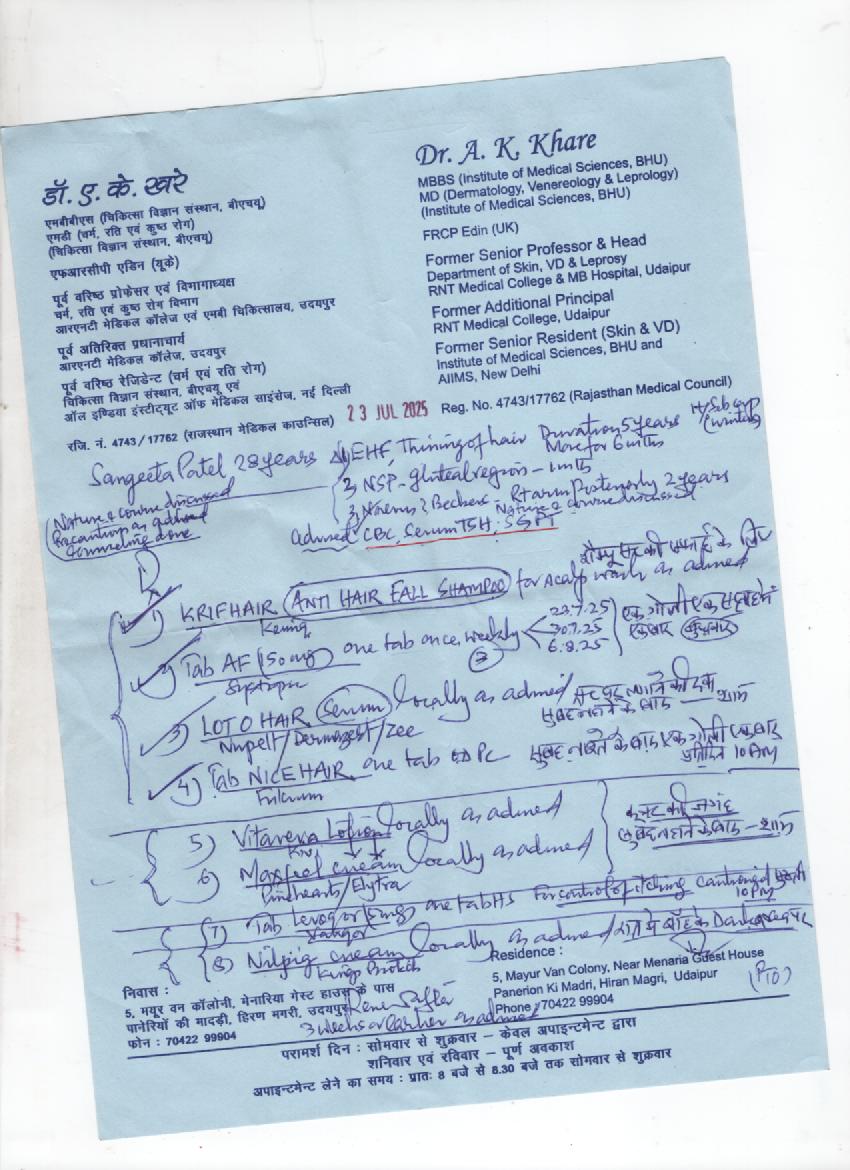 डॉ. ए. के. खरे
एमबीबीएस (चिकित्सा विज्ञान संस्थान, बीएचयू)
एमडी (चर्म, रति एवं कुष्ठ रोग)
(चिकित्सा विज्ञान संस्थान, बीएचयू)
एफआरसीपी एडिन (यूके)
पूर्व वरिष्ठ प्रोफेसर एवं विभागाध्यक्ष
चर्म, रति एवं कुष्ठ रोग विभाग
आरएनटी मेडिकल कॉलेज एवं एमबी चिकित्सालय, उदयपुर
पूर्व अतिरिक्त प्रधानाचार्य
आरएनटी मेडिकल कॉलेज, उदयपुर
पूर्व वरिष्ठ रेजिडेन्ट (चर्म एवं रति रोग)
चिकित्सा विज्ञान संस्थान, बीएचयू एवं
ऑल इण्डिया इंस्टीट्यूट ऑफ मेडिकल साइंसेज, नई दिल्ली
रजि. नं. 4743/17762 (राजस्थान मेडिकल काउन्सिल)
Dr. A. K. Khare
MBBS (Institute of Medical Sciences, BHU)
MD (Dermatology, Venereology & Leprology)
(Institute of Medical Sciences, BHU)
FRCP Edin (UK)
Former Senior Professor & Head
Department of Skin, VD & Leprosy
RNT Medical College & MB Hospital, Udaipur
Former Additional Principal
RNT Medical College, Udaipur
Former Senior Resident (Skin & VD)
Institute of Medical Sciences, BHU and
AIIMS, New Delhi
23 JUL 2025 Reg. No. 4743/17762 (Rajasthan Medical Council)
Sangeeta Patel 28 years
1) EHF, Thining of hair Duration 5 years
More for 6 mths
2) NSP - gluteal region - 1 mth
3) Naevus ? Beckers - Rt arm Posteriorly 2 years
Nature & course discussed
Nature & course discussed
Precaution as advised
Counseling done
Advised: CBC, Serum TSH, SGPT
1) KRIFHAIR ANTI HAIR FALL SHAMPOO for scalp wash as advised
2) Tab AF (150 mg) one tab once weekly
23.7.25
30.7.25
6.8.25
एक गोली एक सप्ताह में
एक बार
3) LOTO HAIR Serum locally as advised
सुबह नहाने के बाद — शाम
4) Tab NICE HAIR one tab OD PC
सुबह नाश्ते के बाद एक गोली एक बार
प्रतिदिन 10 AM
Fulcrum
5) Vitaveva Lotion locally as advised
6) Maxfeel cream locally as advised
सुबह नहाने के बाद — शाम
7) Tab Levogor (5mg) one tab HS For control of itching
10 PM
8) Nilpig cream locally as advised
निवास :
5, मयूर वन कॉलोनी, मेनारिया गेस्ट हाउस के पास
पानेरियों की मादड़ी, हिरण मगरी, उदयपुर
फोन : 70422 99904
Residence :
5, Mayur Van Colony, Near Menaria Guest House
Panerion Ki Madri, Hiran Magri, Udaipur
Phone : 70422 99904
(PTO)
3 weeks or earlier as advised
परामर्श दिन : सोमवार से शुक्रवार – केवल अपाइन्टमेन्ट द्वारा
शनिवार एवं रविवार – पूर्ण अवकाश
अपाइन्टमेन्ट लेने का समय : प्रातः 8 बजे से 8.30 बजे तक सोमवार से शुक्रवार